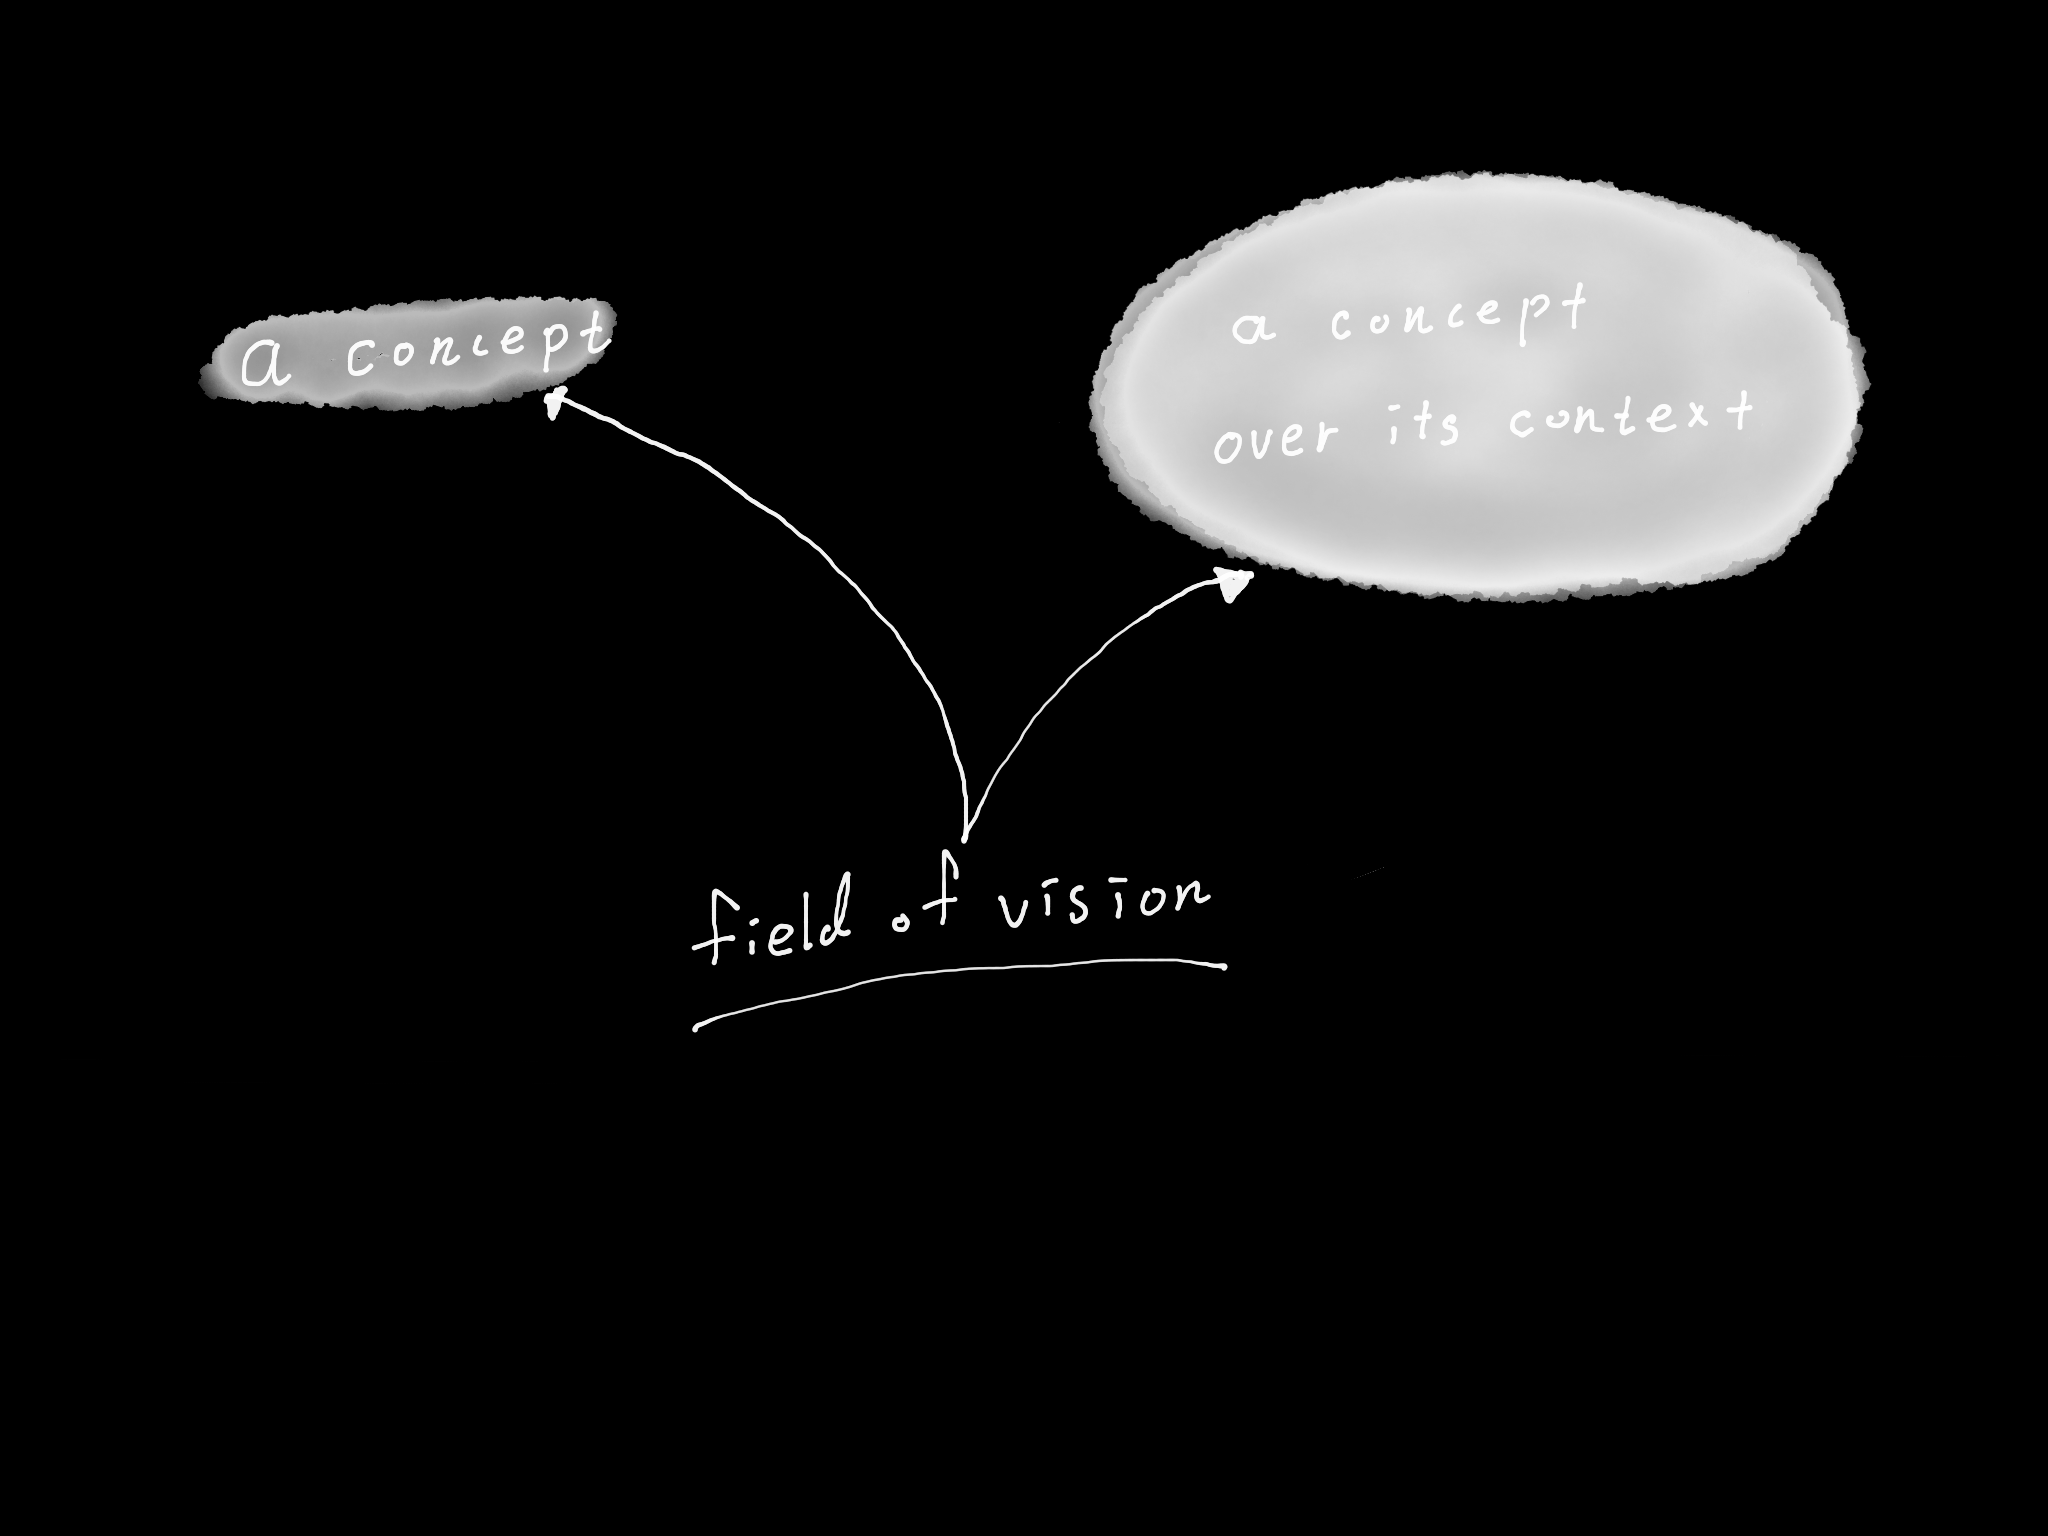 a concept
a concept
over its context
field of vision